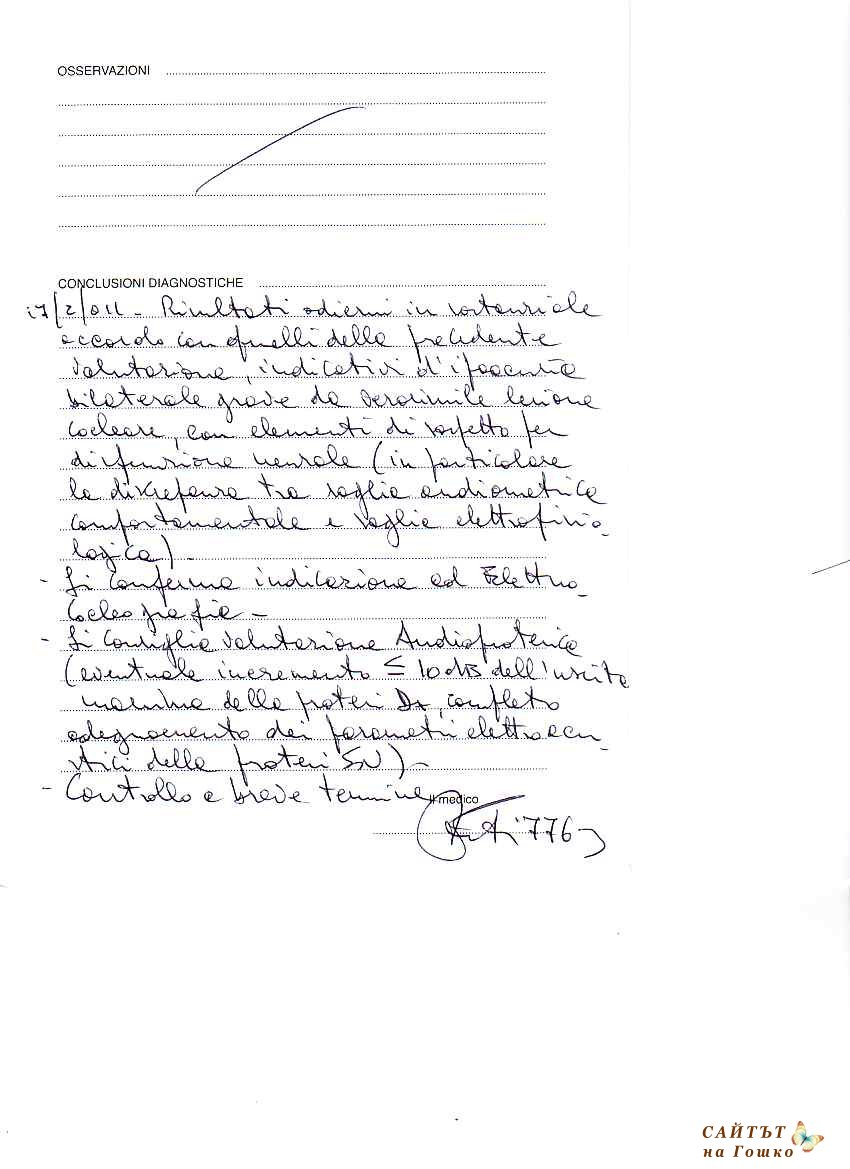 OSSERVAZIONI
CONCLUSIONI DIAGNOSTICHE
17/2/011 - Risultati odierni in sostanziale
accordo con quelli della precedente
valutazione, indicativi d'ipoacusia
bilaterale grave da verosimile lesione
cocleare, con elementi di sospetto per
disfunzione neurale (in particolare
la discrepanza tra soglia audiometrica
comportamentale e soglia elettrofisio-
logica) -
- Si conferma indicazione ad Elettro-
cocleografia -
- Si consiglia valutazione Audioprotesica
(eventuale incremento ≤ 10 dB dell'uscita
massima della protesi Dx, completo
adeguamento dei parametri elettroacu-
stici della protesi SN) -
- Controllo a breve termine
Il medico
776
САЙТЪТ
на Гошко